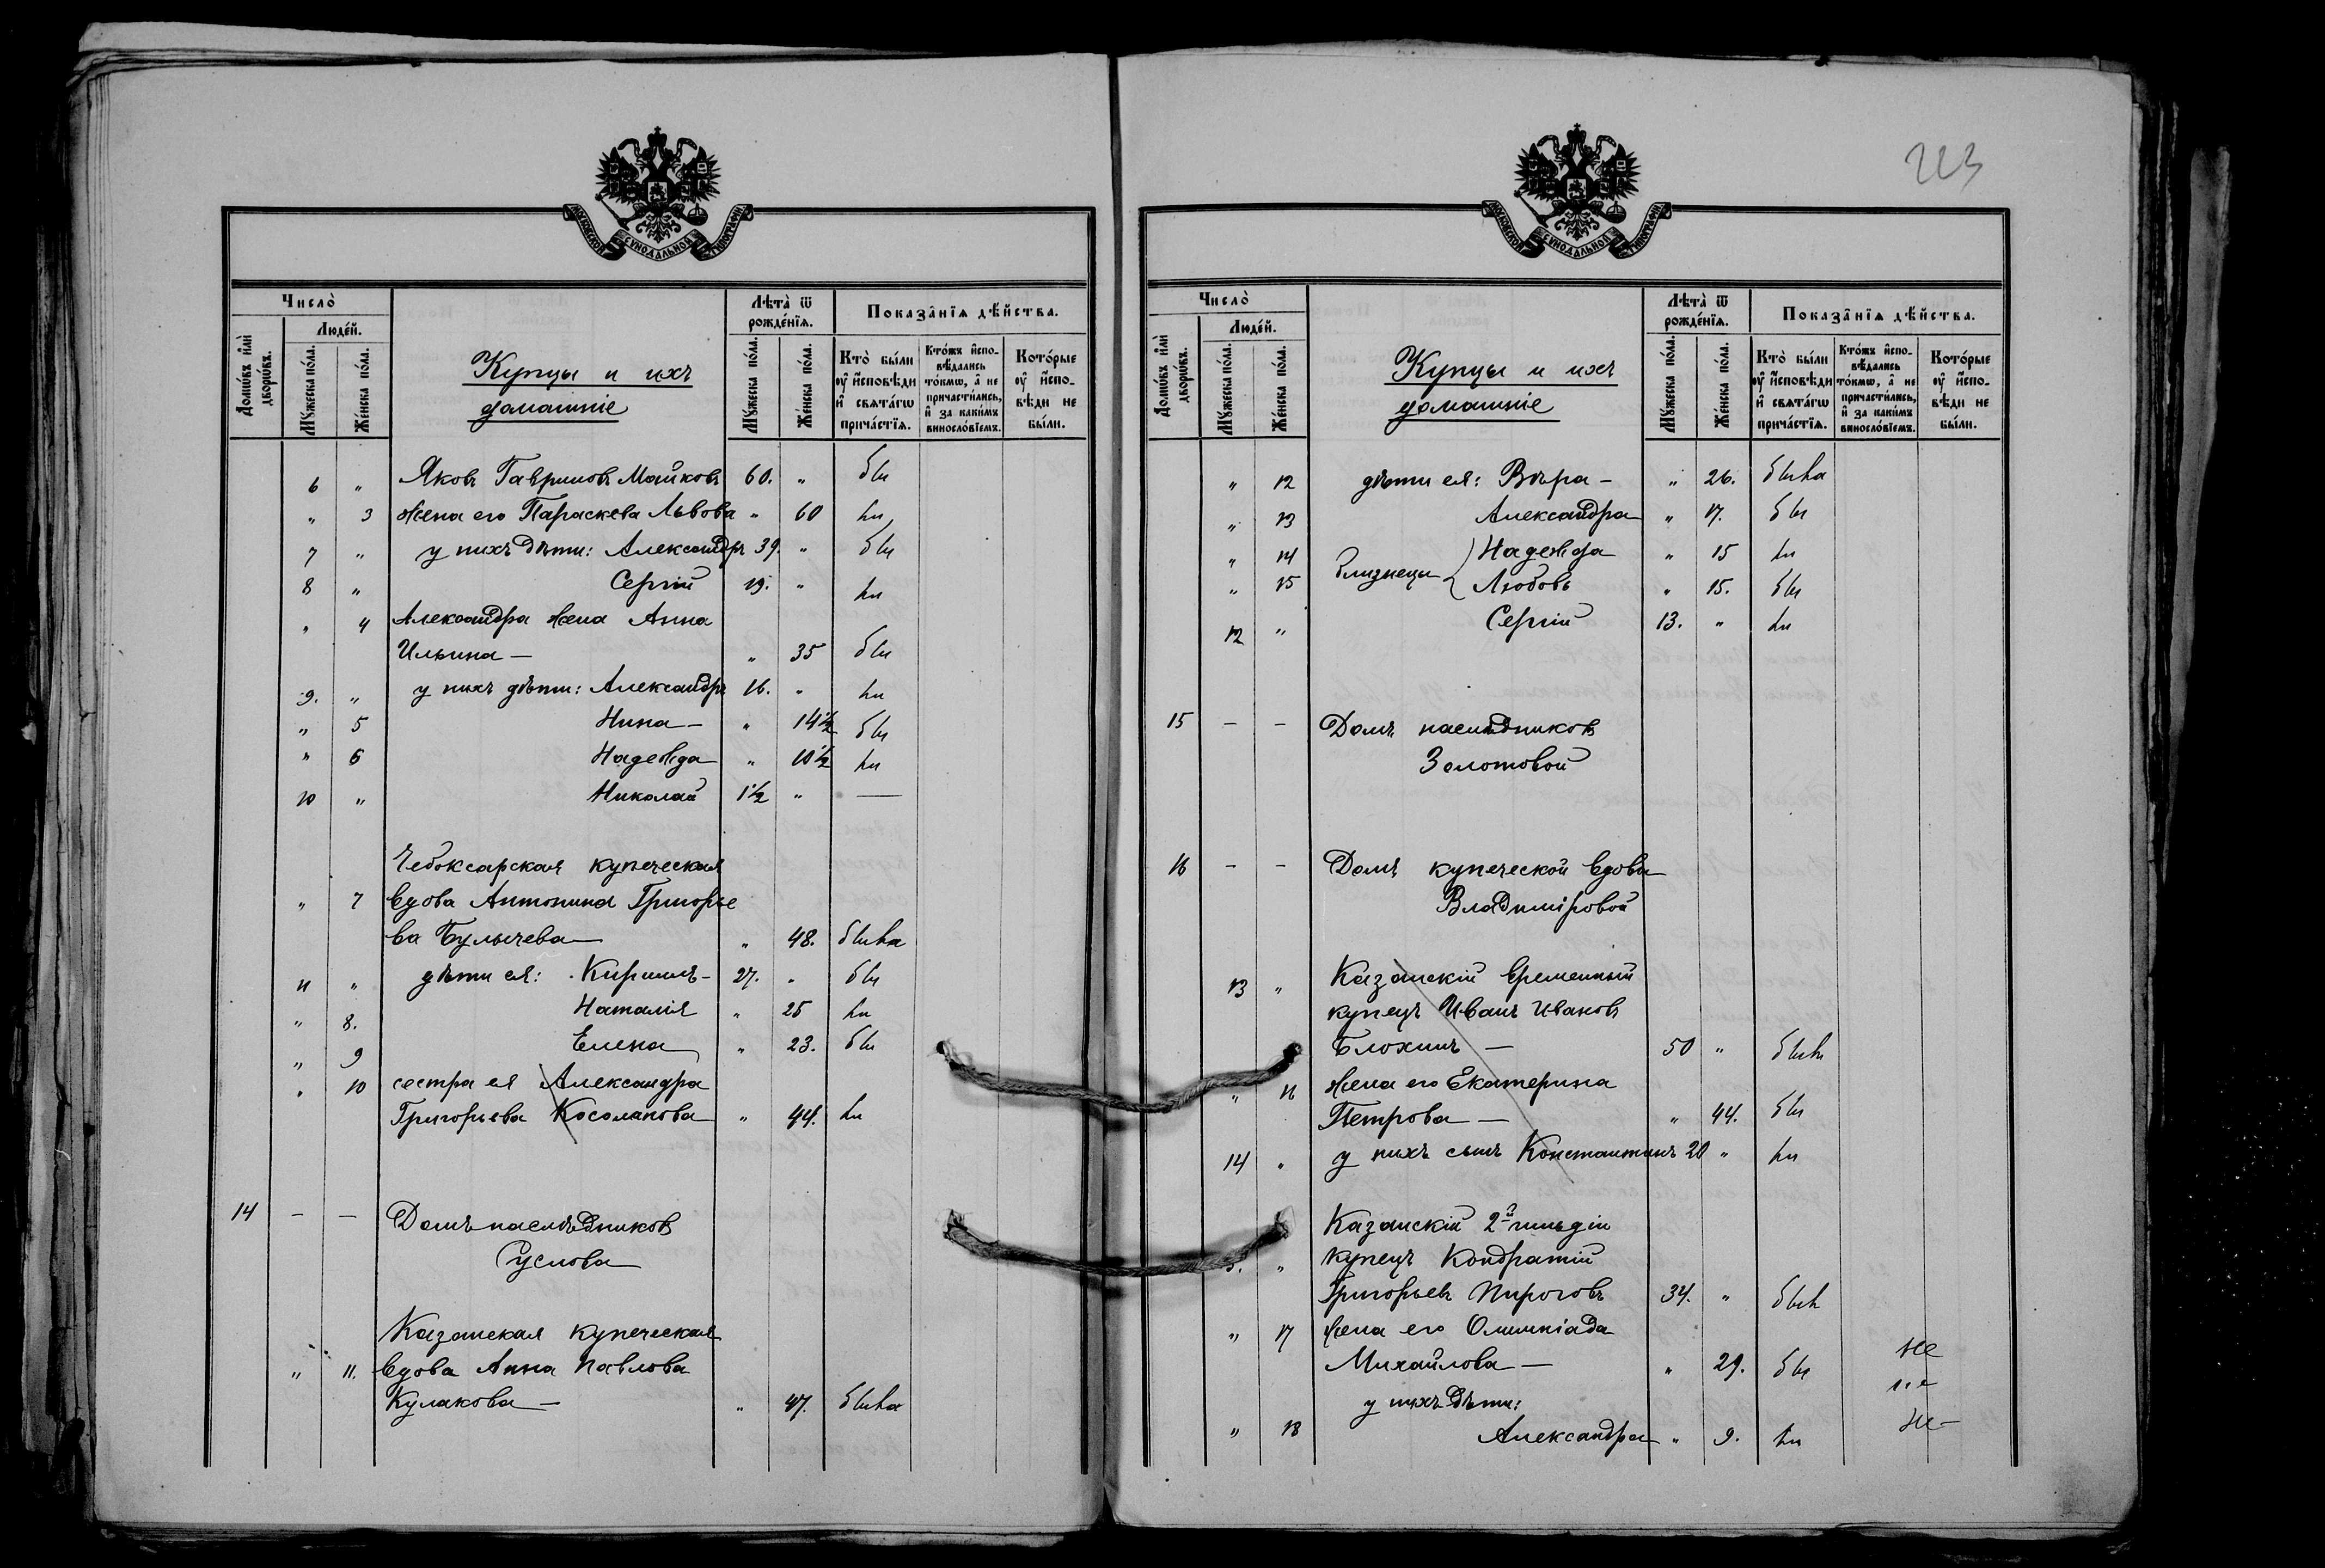 МОСКОВСКОЙ СѴНОДАЛЬНОЙ ТИПОГРАФІИ
Число̀
Люде́й.
Домѡ́въ и҆лѝ дворѡ́въ.
Мꙋ́жеска по́ла.
Же́нска по́ла.
Купцы и ихъ
домашніе
Лѣта̀ ѿ рожде́нїѧ.
Мꙋ́жеска по́ла.
Же́нска по́ла.
Показа̑нїѧ дѣ́йства.
Кто̀ бы́ли оу҆ и҆сповѣди и҆ свѧта́гѡ прича́стїѧ.
Кто́жъ и҆спо- вѣдались то́кмѡ, а҆ не причасти́лись, и҆ за каки́мъ виносло́вїемъ.
Кото́рые оу҆ и҆спо- вѣди не бы́ли.
6 „ Яковъ Гавриловъ Майковъ 60. „ бы
„ 3 жена его Параскева Львова „ 60 ли
7 „ у нихъ дѣти: Александръ 39. „ бы
8 „ Сергій 19. „ ли
„ 4 Александра жена Анна
Ильина — „ 35 бы
9. „ у нихъ дѣти: Александръ 16. „ ли
„ 5 Нина — „ 14½ бы
„ 6 Надежда „ 10½ ли
10 „ Николай 1½ „ —
Чебоксарская купеческая
„ 7 вдова Антонина Григорье
ва Булычева — „ 48. была
11 „ дѣти ея: Кириллъ — 27. „ бы
„ 8. Наталія „ 25 ли
„ 9 Елена „ 23. бы
„ 10 сестра ея Александра
Григорьева Косолапова „ 44. ли
14 — — Домъ наслѣдниковъ
Суслова
Казанская купеческая
„ 11. вдова Анна Павлова
Кулакова — „ 47. была
МОСКОВСКОЙ СѴНОДАЛЬНОЙ ТИПОГРАФІИ
Число̀
Люде́й.
Домѡ́въ и҆лѝ дворѡ́въ.
Мꙋ́жеска по́ла.
Же́нска по́ла.
Купцы и ихъ
домашніе
Лѣта̀ ѿ рожде́нїѧ.
Мꙋ́жеска по́ла.
Же́нска по́ла.
Показа̑нїѧ дѣ́йства.
Кто̀ бы́ли оу҆ и҆сповѣди и҆ свѧта́гѡ прича́стїѧ.
Кто́жъ и҆спо- вѣдались то́кмѡ, а҆ не причасти́лись, и҆ за каки́мъ виносло́вїемъ.
Кото́рые оу҆ и҆спо- вѣди не бы́ли.
„ 12 дѣти ея: Вѣра — „ 26. была
„ 13 Александра „ 17. бы
„ 14 близнецы Надежда „ 15 ли
„ 15 Любовь „ 15. бы
12 „ Сергій 13. „ ли
15 — — Домъ наслѣдниковъ
Золотовой
16 — — Домъ купеческой вдовы
Владиміровой
13 „ Казанскій временный
купецъ Иванъ Ивановъ
Блохинъ — 50 „ былъ
„ 16 жена его Екатерина
Петрова — „ 44. бы
14 „ у нихъ сынъ Константинъ 20 „ ли
Казанскій 2й гильдіи
„ купецъ Кондратій
Григорьевъ Пироговъ 34. „ былъ
„ 17 жена его Олимпіада
Михайлова — „ 29. бы
у нихъ дѣти:
„ 18 Александра „ 9. ли